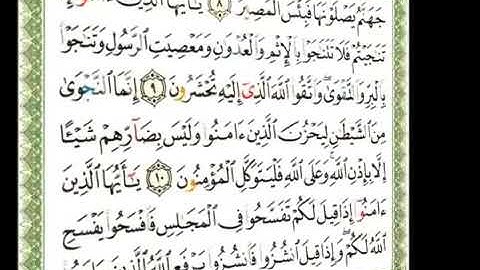 جَهَنَّمُ يَصْلَوْنَهَا فَبِئْسَ الْمَصِيرُ ٨ يَٰٓأَيُّهَا الَّذِينَ
تَنَٰجَيْتُمْ فَلَا تَتَنَٰجَوْا۟ بِالْإِثْمِ وَالْعُدْوَٰنِ وَمَعْصِيَتِ الرَّسُولِ وَتَنَٰجَوْا۟
بِالْبِرِّ وَالتَّقْوَىٰ وَاتَّقُوا۟ اللَّهَ الَّذِىٓ إِلَيْهِ تُحْشَرُونَ ٩ إِنَّمَا النَّجْوَىٰ
مِنَ الشَّيْطَٰنِ لِيَحْزُنَ الَّذِينَ ءَامَنُوا۟ وَلَيْسَ بِضَآرِّهِمْ شَيْـًٔا
إِلَّا بِإِذْنِ اللَّهِ وَعَلَى اللَّهِ فَلْيَتَوَكَّلِ الْمُؤْمِنُونَ ١٠ يَٰٓأَيُّهَا الَّذِينَ
ءَامَنُوٓا۟ إِذَا قِيلَ لَكُمْ تَفَسَّحُوا۟ فِى الْمَجَٰلِسِ فَافْسَحُوا۟ يَفْسَحِ
اللَّهُ لَكُمْ وَإِذَا قِيلَ انشُزُوا۟ فَانشُزُوا۟ يَرْفَعِ اللَّهُ الَّذِينَ ءَامَنُوا۟